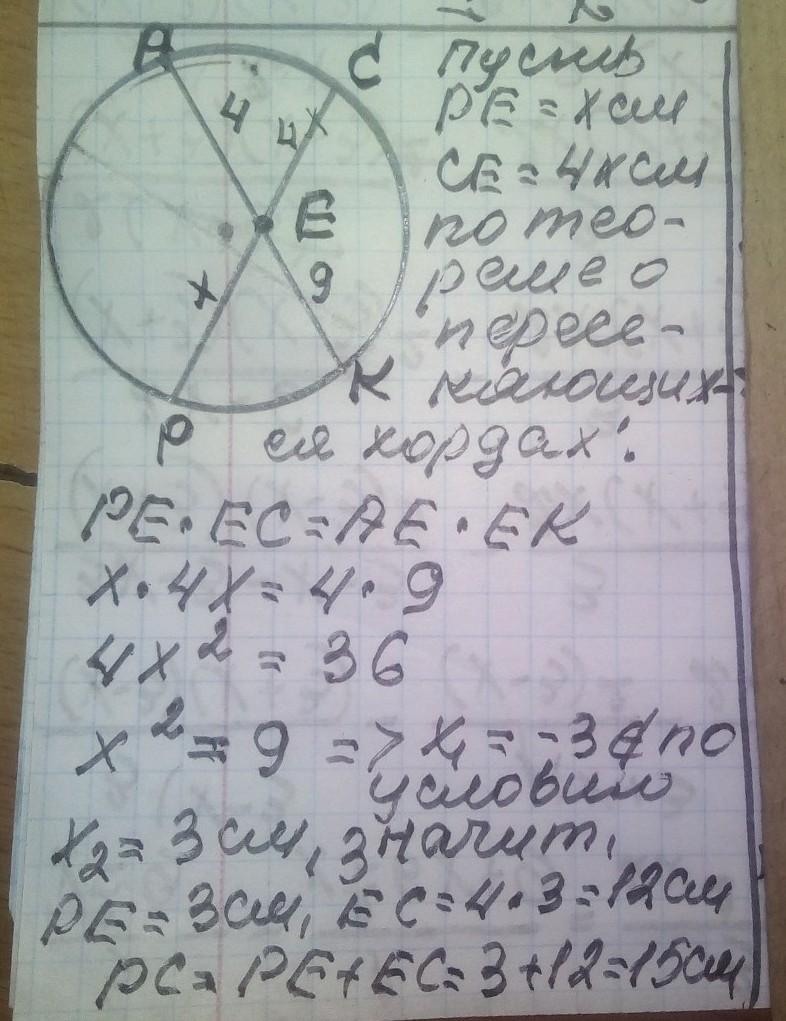 A
C
4
4x
E
x
9
P
K
пусть
PE = x см
CE = 4x см
по тео-
реме о
пересе-
кающих-
ся хордах:
PE · EC = AE · EK
x · 4x = 4 · 9
4x² = 36
x² = 9 => x₁ = -3 ∉ по
условию
x₂ = 3 см, значит,
PE = 3 см, EC = 4 · 3 = 12 см
PC = PE + EC = 3 + 12 = 15 см